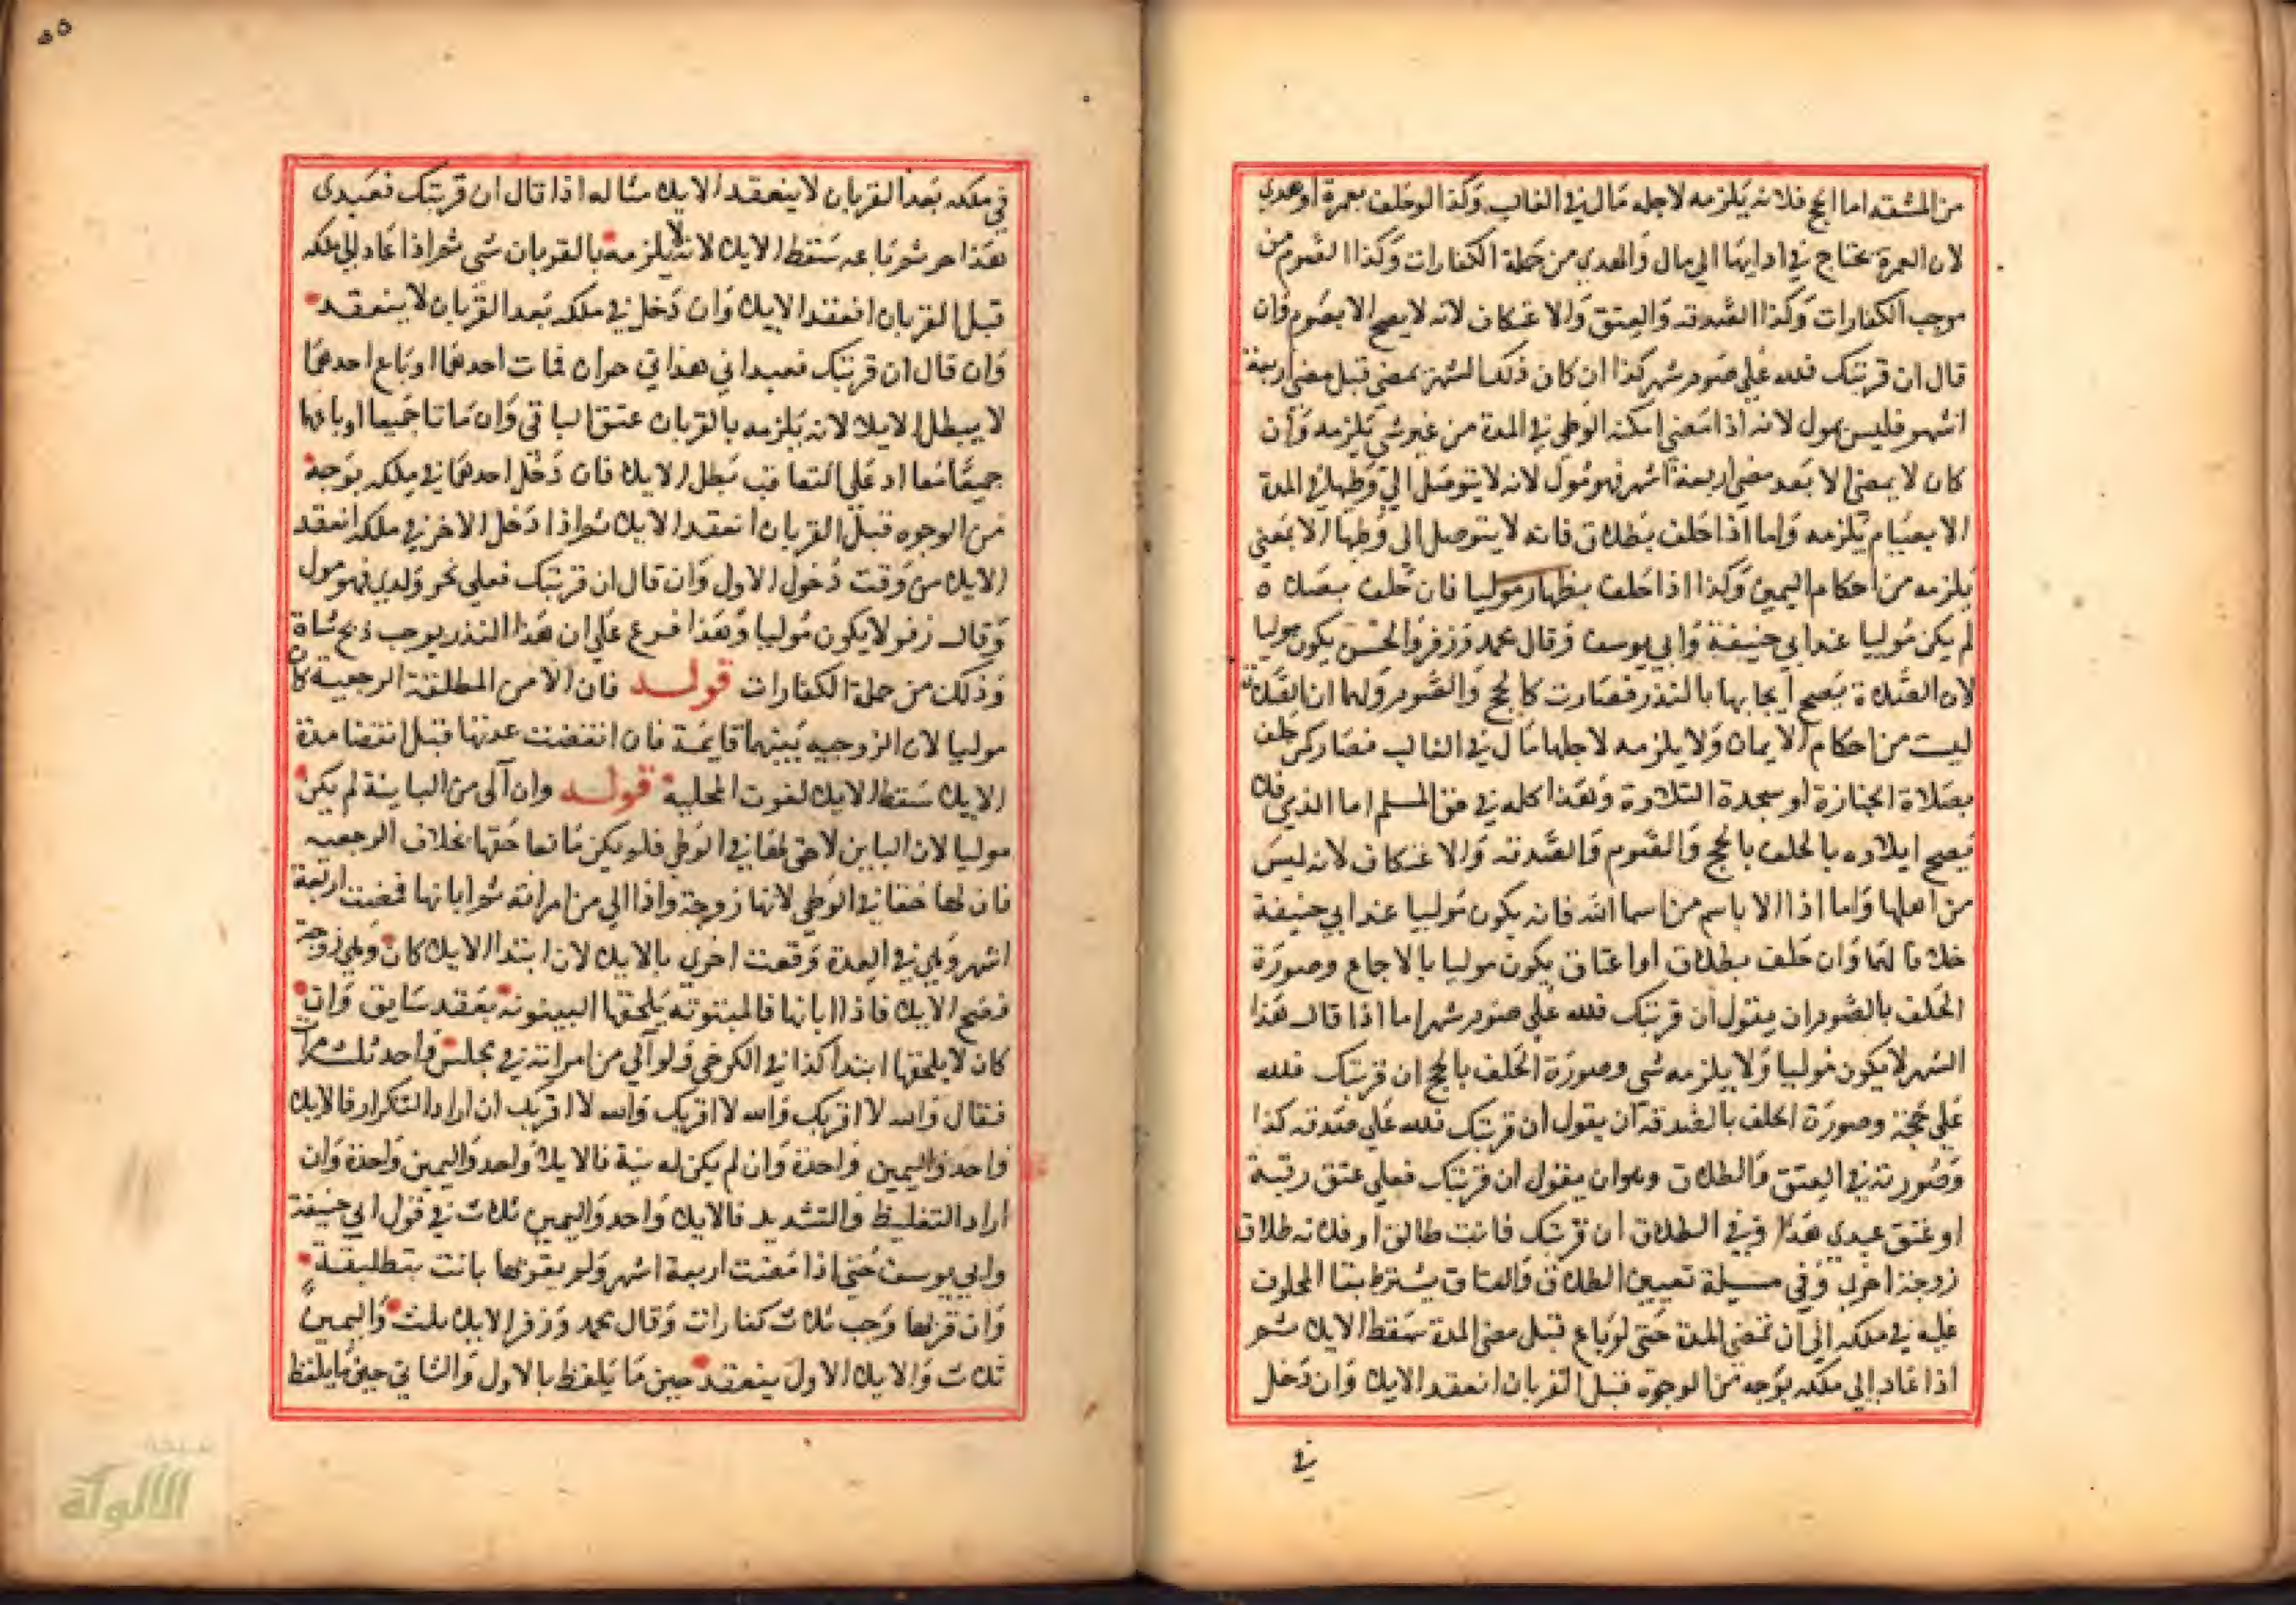 من المشقة اما الحج فلانه يلزمه لاجله مال في الغالب وكذا لو حلف بعمرة او هدي
لان العمرة يحتاج في ادايها الي مال والهدي من جملة الكفارات وكذا الصوم من
موجب الكفارات وكذا الصدقه والعتق والاعتكاف لانه لا يصح الا بصوم وان
قال ان قربتك فلله علي صوم شهر كذا ان كان ذلك الشهر يمضي قبل مضي اربعة
اشهر فليس بمول لانه اذا مضي امكنه الوطي في المدة من غير شي يلزمه وان
كان لا يمضي الا بعد مضي اربعة اشهر فهو مول لانه لا يتوصل الي وطيها في المدة
الا بصيام يلزمه واما اذا حلف بطلاق فانه لا يتوصل الي وطيها الا بمعني
يلزمه من احكام اليمين وكذا اذا حلف بظهار موليا فان حلف بصلاه
لم يكن موليا عند ابي حنيفة وابي يوسف وقال محمد وزفر والحسن يكون موليا
لان الصلاة يصح ايجابها بالنذر فصارت كالحج والصوم ولهما ان الصلاة
ليست من احكام الايمان ولا يلزمه لاجلها مال في الغالب فصار كمن حلف
بصلاة الجنازة او سجدة التلاوة وهذا كله في حق المسلم اما الذمي فلا
يصح ايلاوه بالحلف بالحج والصوم والصدقه والاعتكاف لانه ليس
من اهلها واما اذا الا باسم من اسما الله فانه يكون موليا عند ابي حنيفة
خلافا لهما وان حلف بطلاق او اعتاق يكون موليا بالاجماع وصورة
الحلف بالصوم ان يقول ان قربتك فلله علي صوم شهر اما اذا قال هذا
الشهر لا يكون موليا ولا يلزمه شي وصورة الحلف بالحج ان قربتك فلله
علي حجة وصورة الحلف بالصدقة ان يقول ان قربتك فلله علي صدقه كذا
وصورته في العتق والطلاق وهو ان يقول ان قربتك فعلي عتق رقبة
او عتق عبدي هذا وفي الطلاق ان قربتك فانت طالق او فلانه طلاق
زوجة اخرى وفي مسيلة تعيين الطلاق والعتاق يشترط بقا المحلوف
عليه في ملكه الي ان تمضي المدة حتي لو باع قبل مضي المدة سقط الايلا ثم
اذا عاد الي ملكه بوجه من الوجوه قبل القربان انعقد الايلا وان دخل
في
في ملكه بعد القربان لا ينعقد الايلا مثاله اذا قال ان قربتك فعبدى
هذا حر ثم باعه سقط الايلا لانه لا يلزمه بالقربان شي ثم اذا عاد الي ملكه
قبل القربان انعقد الايلا وان دخل في ملكه بعد القربان لا ينعقد
وان قال ان قربتك فعبداي هذاني حران فمات احدهما او باع احدهما
لا يبطل الايلا لانه يلزمه بالقربان عتق الباقي وان ماتا جميعا او باعهما
جميعا معا او علي التعاقب بطل الايلا فان دخل احدهما في ملكه بوجه
من الوجوه قبل القربان انعقد الايلا ثم اذا دخل الاخر في ملكه انعقد
الايلا من وقت دخول الاول وان قال ان قربتك فعلي نحر ولدي فهو مول
وقال زفر لا يكون موليا وهذا فرع علي ان هذا النذر يوجب ذبح شاة
وذلك من جملة الكفارات قوله فان الا من المطلقة الرجعية كان
موليا لان الزوجيه بينهما قايمة فان انقضت عدتها قبل انقضا مدة
الايلا سقط الايلا لفوت المحلية قوله وان آلى من الباينة لم يكن
موليا لان الباين لا حق لها في الوطي فلم يكن مانعا حقها بخلاف الرجعيه
فان لها حقا في الوطي لانها زوجة واذا الي من امراته ثم ابانها فمضت اربعة
اشهر وهي في العدة وقعت اخري بالايلا لان ابتدا الايلا كان وهي زوجة
فصح الايلا فاذا ابانها فالمبتوته يلحقها البينونه بعقد سابق وان
كان لا يلحقها ابتدا كذا في الكرخي ولو آلي من امراته في مجلس واحد ثلث مرات
فقال والله لا اقربك والله لا اقربك والله لا اقربك ان اراد التكرار فالايلا
واحد واليمين واحدة وان لم يكن له نية فالايلا واحد واليمين واحدة وان
اراد التغليظ والتشديد فالايلا واحد واليمين ثلاث في قول ابي حنيفة
وابي يوسف حتي اذا مضت اربعة اشهر ولم يقربها بانت بتطليقة
وان قربها وجب ثلاث كفارات وقال محمد وزفر الايلا ثلث واليمين
ثلاث والايلا الاول ينعقد حين ما يلفظ بالاول والثاني حين ما يلفظ
الألوكة